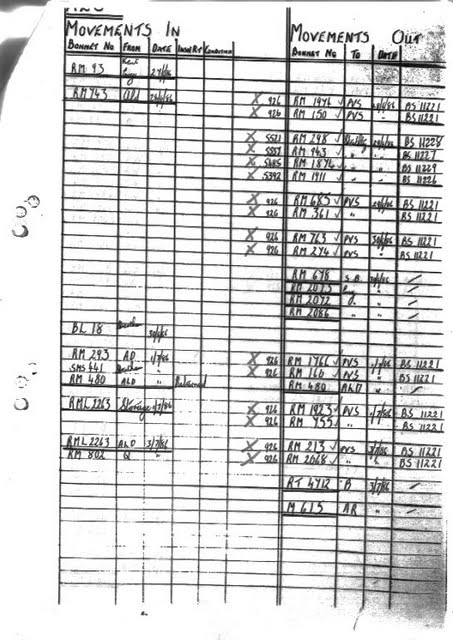 MOVEMENTS IN
BONNET NO FROM DATE INSW RT CONDITION
RM 93
RM 743 Old
BL 18
RM 293 AD 1/7/86
SMS 441
RM 480 ALD " Returned
RML 2263 Storage
RML 2263 ALD 3/7/86
RM 802 Q "
MOVEMENTS OUT
BONNET NO TO DATE
X 926 RM 1976 ✓ PVS BS 11221
X 926 RM 150 ✓ PVS BS 11221
X 5521 RM 298 ✓ BS 11228
X RM 943 ✓ " BS 11227
X RM 1874 ✓ " BS 11229
X 5392 RM 1911 ✓ " BS 11226
X 926 RM 685 ✓ PVS BS 11221
X 926 RM 361 ✓ " BS 11221
X 926 RM 763 ✓ PVS BS 11221
X 926 RM 274 ✓ PVS " BS 11221
RM 678
RM 2073
RM 2072
RM 2086
X 926 RM 1766 ✓ PVS 1/7/86 BS 11221
X 926 RM 160 ✓ PVS " BS 11221
RM 480 ALD "
X 926 RM 1923 ✓ PVS BS 11221
X 926 RM 955 ✓ " BS 11221
X 926 RM 213 ✓ PVS 3/7/86 BS 11221
X 926 RM 2068 ✓ " BS 11221
RT 4712 B 3/7/86
M 615 AR "